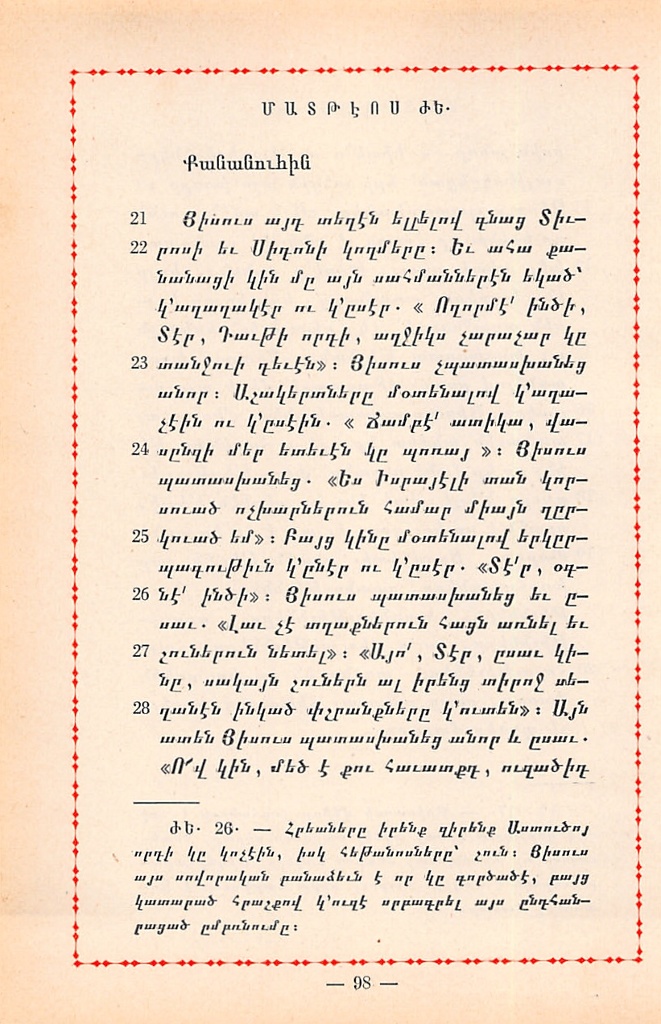 ՄԱՏԹԷՈՍ ԺԵ․
Քանանուհին
21 Յիսուս այդ տեղէն ելլելով գնաց Տիւ—
22 րոսի եւ Սիդոնի կողմերը։ Եւ ահա քա—
նանացի կին մը այն սահմաններէն եկած՝
կ՚աղաղակէր ու կ՚ըսէր․ « Ողորմէ՛ ինծի,
Տէր, Դաւթի որդի, աղջիկս չարաչար կը
23 տանջուի դեւէն»։ Յիսուս չպատասխանեց
անոր։ Աշակերտները մօտենալով կ՚աղա—
չէին ու կ՚ըսէին․ « Ճամբէ՛ ատիկա, վա—
24 սընզի մեր ետեւէն կը պոռայ »։ Յիսուս
պատասխանեց․ «Ես Իսրայէլի տան կոր—
սուած ոչխարներուն համար միայն ղըր—
25 կուած եմ»։ Բայց կինը մօտենալով երկըր—
պագութիւն կ՚ընէր ու կ՚ըսէր․ «Տէ՛ր, օգ—
26 նէ՛ ինծի»։ Յիսուս պատասխանեց եւ ը—
սաւ․ «Լաւ չէ տղաքներուն հացն առնել եւ
27 շուներուն նետել»։ «Այո՛, Տէր, ըսաւ կի—
նը, սակայն շուներն ալ իրենց տիրոջ սե—
28 ղանէն ինկած փշրանքները կ՚ուտեն»։ Այն
ատեն Յիսուս պատասխանեց անոր և ըսաւ․
«Ո՜վ կին, մեծ է քու հաւատքդ, ուզածիդ
ԺԵ․ 26․ — Հրեաները իրենք զիրենք Աստուծոյ
որդի կը կոչէին, իսկ հեթանոսները՝ շուն։ Յիսուս
այս սովորական բանաձեւն է որ կը գործածէ, բայց
կատարած հրաշքով կ՚ուզէ սրբագրել այս ընդհան—
րացած ըմբռնումը։
— 98 —